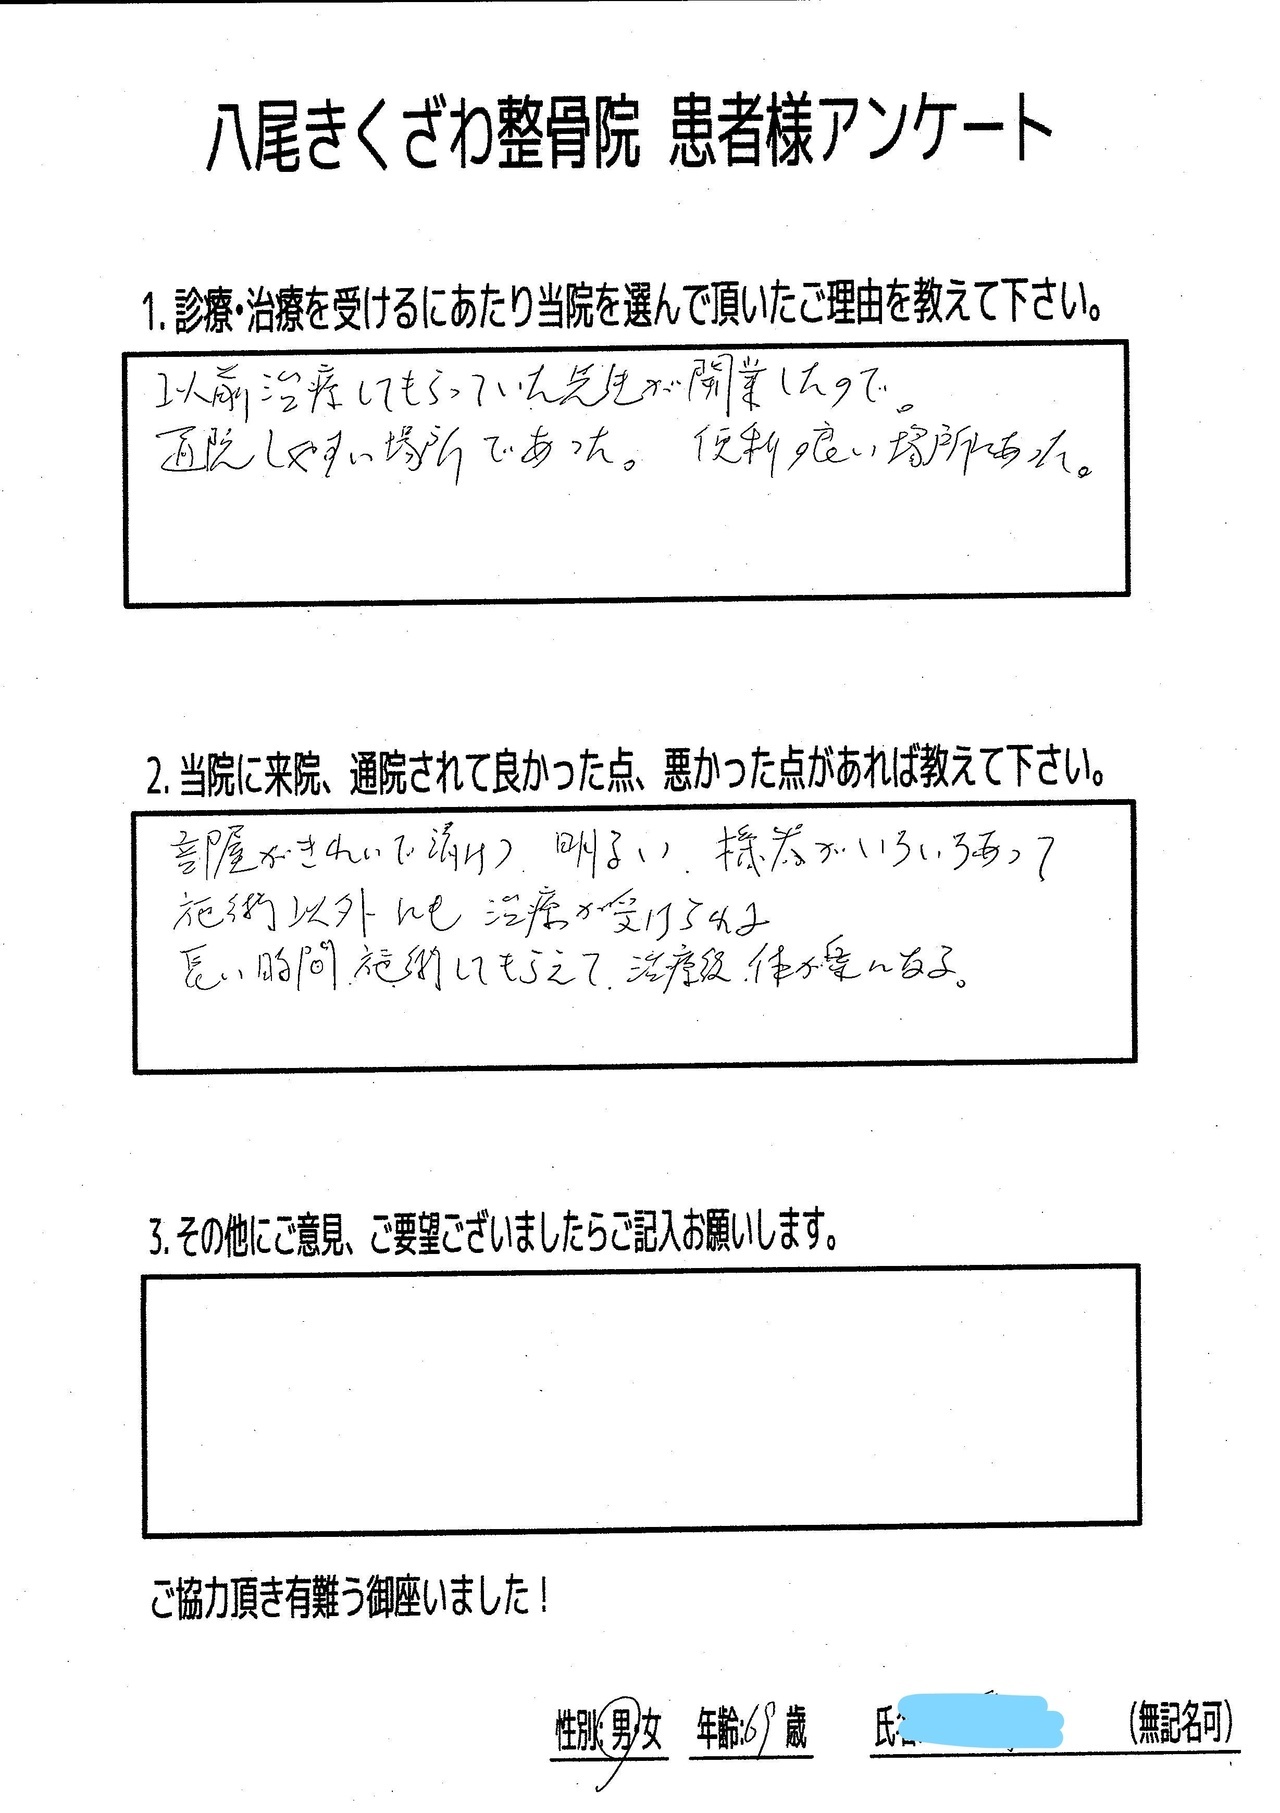 八尾きくざわ整骨院 患者様アンケート
1. 診療・治療を受けるにあたり当院を選んで頂いたご理由を教えて下さい。
以前治療してもらっていた先生が開業したので。
通院しやすい場所であった。 便利の良い場所にあった。
2. 当院に来院、通院されて良かった点、悪かった点があれば教えて下さい。
部屋がきれいで清けつ 明るい 機器がいろいろあって
施術以外にも治療が受けられる
長い時間施術してもらえて治療後体が楽になる。
3. その他にご意見、ご要望ございましたらご記入お願いします。
ご協力頂き有難う御座いました！
性別:男・女 年齢:69歳 氏名 （無記名可）